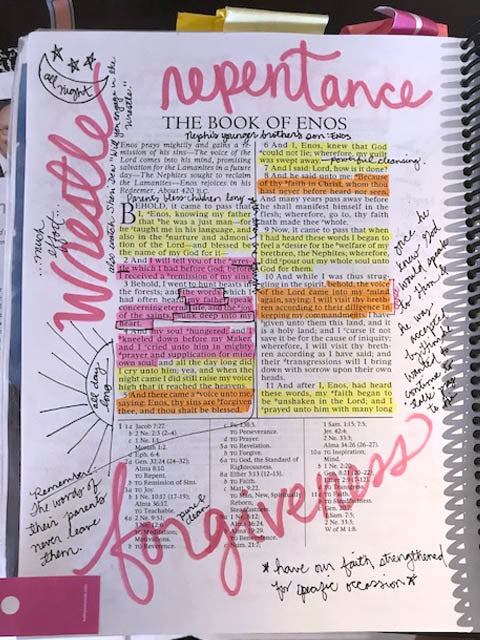 repentance
all night
Wrestle
...much effort...
THE BOOK OF ENOS
Nephi's younger brothers son: Enos
Enos prays mightily and gains a re-
mission of his sins—The voice of the
Lord comes into his mind, promising
salvation for the Lamanites in a future
day—The Nephites sought to reclaim
the Lamanites—Enos rejoices in his
Redeemer. About 420 B.C.
Parents bless children long
BEHOLD, it came to pass that
I, Enos, knowing my father
that he was a just man—for
he taught me in his language, and
also in the nurture and admoni-
tion of the Lord—and blessed be
the name of my God for it—
2 And I will tell you of the wres-
tle which I had before God, before
I received a remission of my sins.
3 Behold, I went to hunt beasts in
the forests; and the words which I
had often heard my father speak
concerning eternal life, and the joy
of the saints, sunk deep into my
heart.
4 And my soul hungered; and I
kneeled down before my Maker,
and I cried unto him in mighty
prayer and supplication for mine
own soul; and all the day long did
I cry unto him; yea, and when the
night came I did still raise my voice
high that it reached the heavens.
5 And there came a voice unto me,
saying: Enos, thy sins are forgiven
thee, and thou shalt be blessed.
6 And I, Enos, knew that God
could not lie; wherefore, my guilt
was swept away.
powerful cleansing
7 And I said: Lord, how is it done?
8 And he said unto me: Because
of thy faith in Christ, whom thou
hast never before heard nor seen.
And many years pass away before
he shall manifest himself in the
flesh; wherefore, go to, thy faith
hath made thee whole.
9 Now, it came to pass that when
I had heard these words I began to
feel a desire for the welfare of my
brethren, the Nephites; wherefore,
I did pour out my whole soul unto
God for them.
10 And while I was thus strug-
gling in the spirit, behold, the voice
of the Lord came into my mind
again, saying: I will visit thy breth-
ren according to their diligence in
keeping my commandments. I have
given unto them this land, and it
is a holy land; and I curse it not
save it be for the cause of iniquity;
wherefore, I will visit thy breth-
ren according as I have said; and
their transgressions will I bring
down with sorrow upon their own
heads.
11 And after I, Enos, had heard
these words, my faith began to
be unshaken in the Lord; and I
prayed unto him with many long
all day long
1 1a Jacob 7:27.
b 2 Ne. 2:2–4
c Ne. 1:1
Alma 8:10
TG Repent.
b TG Remission of Sins.
3a TG Joy.
Alma 36:17.
TG Teachable.
TG Meditation;
Motivations.
b TG Reverence.
TG Perseverance.
d TG Prayer.
5a TG Revelation.
b TG Forgive.
6a TG God, the Standard of
Righteousness.
8a Ether 3:13
b TG Faith.
TG Benevolence.
1 Sam. 1:15; 7:5;
Jer. 42:4;
2 Ne. 33:3;
Alma 34:26 (26–27).
10a TG Inspiration;
Mind.
b 1 Ne. 2:20
11a TG Faith.
1 Sam. 7:5;
2 Ne. 33:3;
W of M 1:8.
Remember:
The words of
their parents
never leave
them.
forgiveness
*have our faith strengthened
for specific occassion*